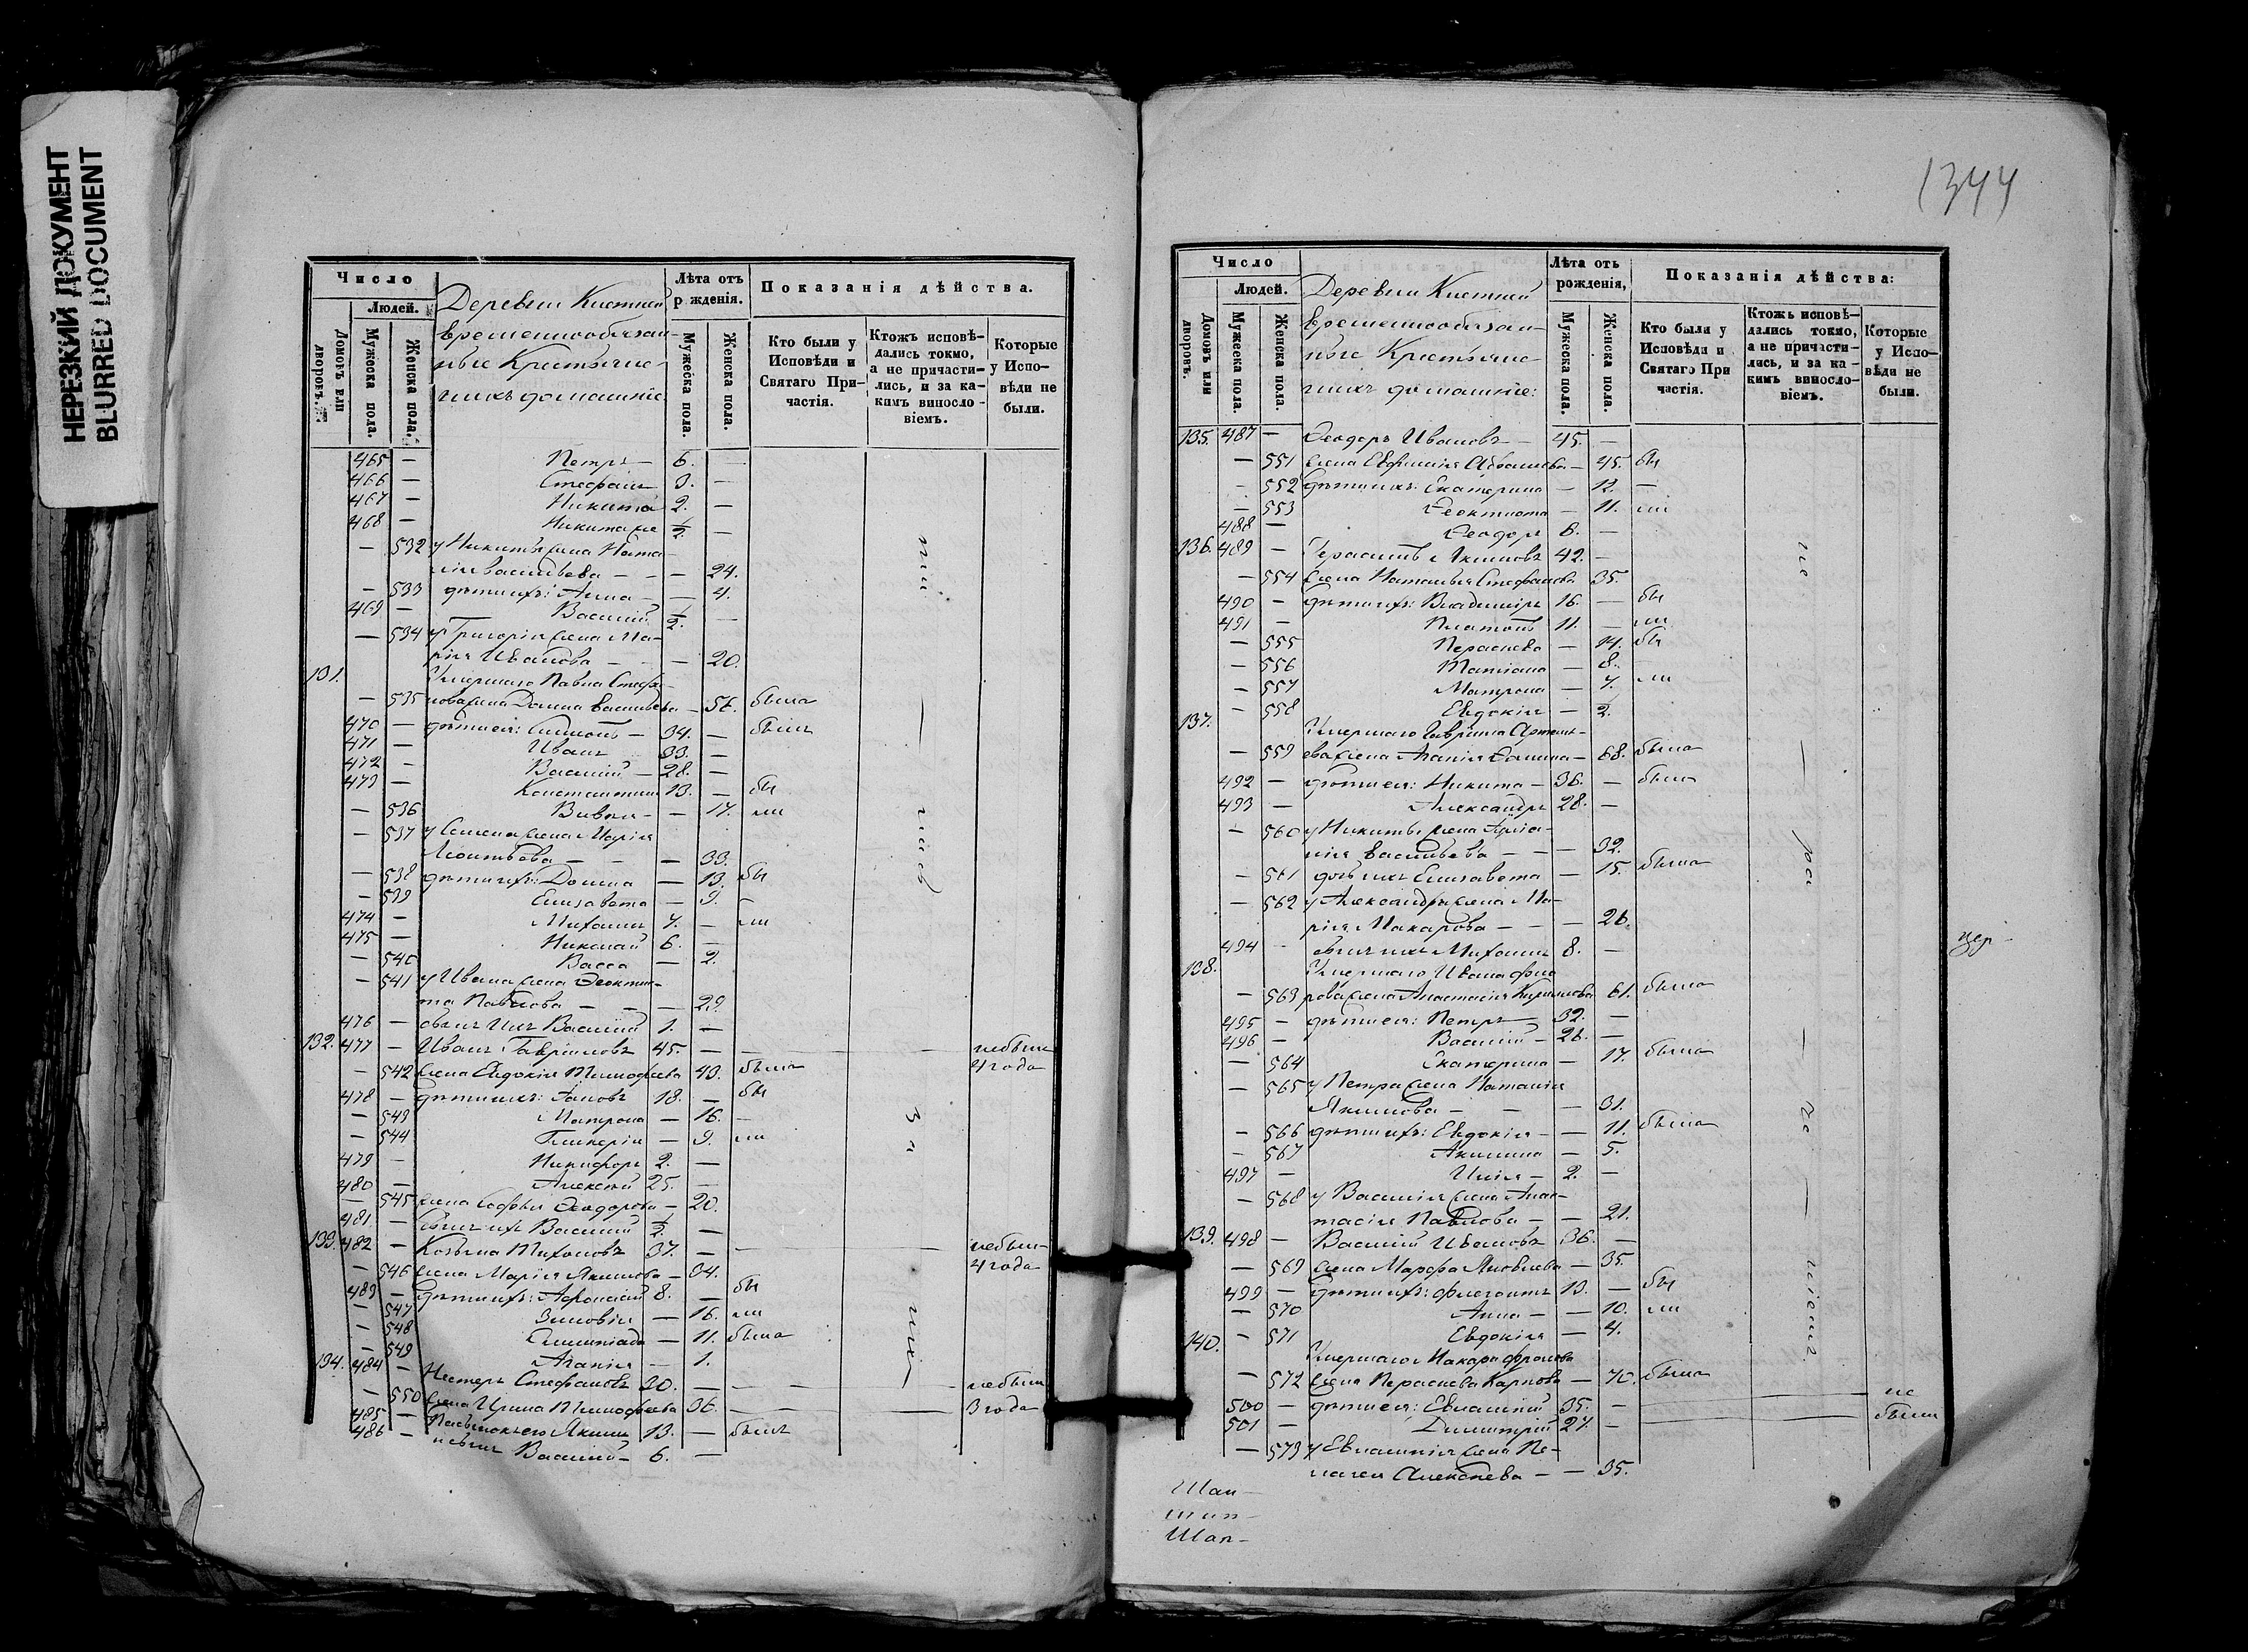 НЕРЕЗКИЙ ДОКУМЕНТ
BLURRED DOCUMENT
Число
Людей.
Домовъ или дворовъ.
Мужеска пола.
Женска пола.
Деревни
временнообязан-
ные Крестьяне
и ихъ домашніе
Лѣта отъ рожденія.
Мужеска пола.
Женска пола.
Показанія дѣйства.
Кто были у Исповѣди и Святаго Причастія.
Ктожъ исповѣдались токмо, а не причастились, и за какимъ винословіемъ.
Которые у Исповѣди не были.
465 — Петръ — 6. —
466 — Стефанъ 3. —
467 — Никита 2. —
468 — Никита же ½ —
— 532 у Никиты жена Ната-
лія Васильева — — — 24.
— 533 дѣти ихъ: Анна — — 4.
469 — Василій ½ —
— 534 у Григорія жена Ма-
рія Иванова — — — 20.
131. Умершаго Павла Стефа-
— 535 нова жена Домна Васильева — 56. была
470 — дѣти ея: Симеонъ — 34. — былъ
471 — Иванъ 33. —
472 — Василій — 28. —
473 — Константинъ 13. — бы
— 536 — 17. ли
— 537 у Семена жена Марія
Леонтьева — — — 33.
— 538 дѣти ихъ: Домна — 13. бы
— 539 Елизавета — 9.
474 — Михаилъ 7. — ли
475 — Николай 6. —
— 540 Васса — 2.
— 541 у Ивана жена Феокти-
ста Павлова — — — 29.
476 — сынъ ихъ Василій 1. —
132. 477 — Иванъ Гавриловъ 45. — — — небылъ
— 542 жена Евдокія Тимофеева 43. была 4 года
478 — дѣти ихъ: Іаковъ 18. — бы
— 543 Матрона — 16. —
— 544 Гликерія — 9. ли
479 — Никифоръ 2. —
480 — Алексѣй 25. —
— 545 жена Софья Феодорова — 20.
481 — сынъ ихъ Василій ½ —
133. 482 — Козьма Тихоновъ 37. — — — небылъ
— 546 жена Марія Якимова — 34. 4 года
483 — дѣти ихъ: Афонасій 8. — бы
— 547 Зиновія — 16. ли
— 548 Олимпіада — 11. была
— 549 Агапія — 1.
134. 484 — Нестеръ Стефановъ 30. — — — небылъ
— 550 жена Ирина Тимофеева 36. — — 3 года
485 — Пасынокъ его Якимъ 13. — былъ
486 — Василій — 6. —
1344
Число
Людей.
Домовъ или дворовъ.
Мужеска пола.
Женска пола.
Деревни
временнообязан-
ные Крестьяне
и ихъ домашніе:
Лѣта отъ рожденія,
Мужеска пола.
Женска пола.
Показанія дѣйства:
Кто были у Исповѣди и Святаго Причастія.
Ктожъ исповѣдались токмо, а не причастились, и за какимъ винословіемъ.
Которые у Исповѣди не были.
135. 487 — Феодоръ Ивановъ — 45. —
— 551 жена Евфимія — 45. бы
— 552 дѣти ихъ: Екатерина — 12. —
— 553 Феоктиста — 11. ли
488 — Феодоръ 6. —
136. 489 — Герасимъ Якимовъ 42. —
— 554 жена Наталья Стефанова 35.
490 — дѣти ихъ: Владиміръ 16. — бы
491 — Платонъ 11. — ли
— 555 Параскева — 14. бы
— 556 Татіана — 8.
— 557 Матрона — 7. ли
— 558 Евдокія — ½
137. Умершаго Гавріила Артемь-
— 559 ева жена Агапія Фомина — 68. была
492 — дѣти ея: Никита — 36. — была
493 — Александръ 28. —
— 560 у Никиты жена
Васильева — — — 32.
— 561 дочь ихъ Елизавета — 15. была
— 562 у Александра жена Ма-
рія Макарова — — — 26.
494 — сынъ ихъ Михаилъ 8. —
138. Умершаго Ивана
— 563 жена Анастасія Кирилова 61. была
495 — дѣти ея: Петръ — 32. —
496 — Василій — 26. —
— 564 Екатерина — 17. была
— 565 у Петра жена Наталія
Якимова — — — 31.
— 566 дѣти ихъ: Евдокія — — 11. была
— 567 Акилина — 5.
497 — Илія — 2. —
— 568 у Василія жена Анас-
тасія Павлова — — 21.
139. 498 — Василій Ивановъ 36. —
— 569 жена Марфа Яковлева — 35.
499 — дѣти ихъ: Флегонтъ 13. — бы
— 570 Анна — — 10. ли
— 571 Евдокія — 4.
140. Умершаго Макара Фролова
— 572 жена Параскева Карпова — 70. была
500 — дѣти ея: Евлампій 35. — — — не
501 — Димитрій 27. — — — были
— 573 у Евлампія жена Пе-
лагея Алексѣева — — 35.
цер-